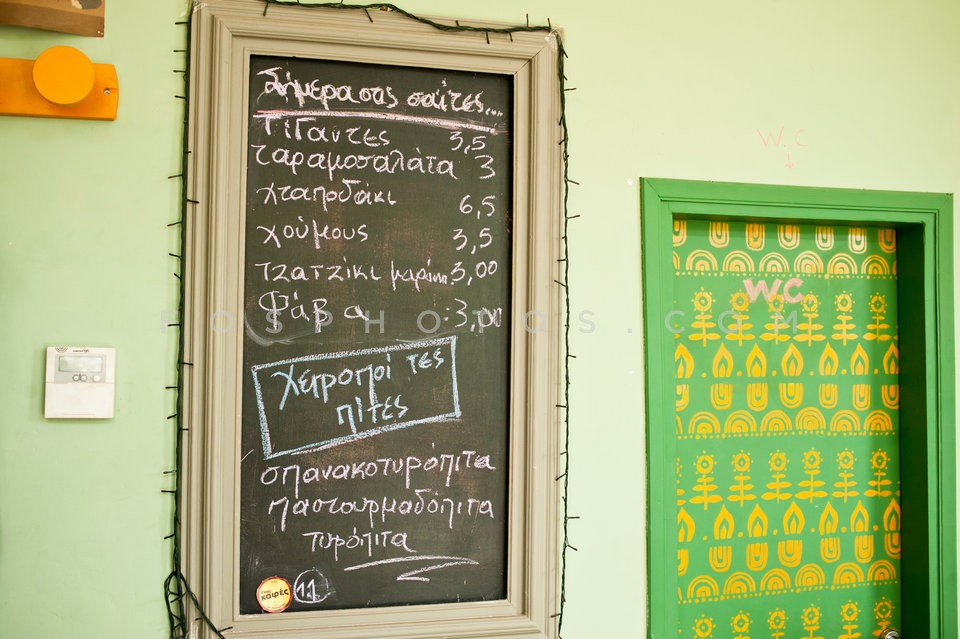 σήμερα στις σαΐτες...
Γίγαντες 3,5
ταραμοσαλάτα 3
χταποδάκι 6,5
χούμους 3,5
τζατζίκι 3,00
Φάβα : 3,00
χειροποίητες
πίτες
σπανακοτυρόπιτα
παστουρμαδόπιτα
τυρόπιτα
καιρές
11
W.C
WC